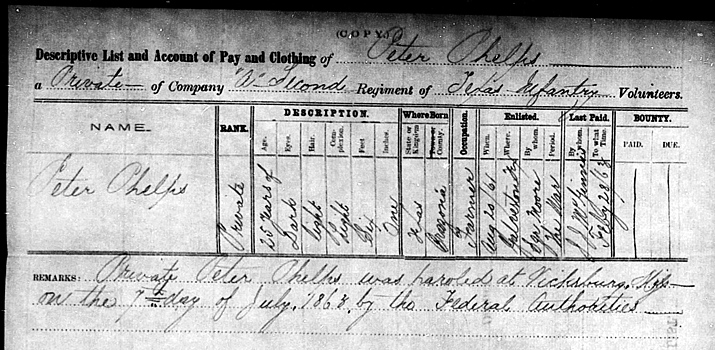 (COPY.)
Descriptive List and Account of Pay and Clothing of Peter Phelps
a Private of Company Second Regiment of Texas Infantry Volunteers.
NAME. RANK. DESCRIPTION. Where Born Occupation. Enlisted. Last Paid. BOUNTY.
Age. Eyes. Hair. Complexion. Feet Inches. State or Kingdom Town or County. When. Where. By whom. Period. By whom. To what Time. PAID. DUE.
Peter Phelps Private 25 Years of Dark Light Light Six One Texas Brazoria Farmer Aug 20/61 Galveston Tx Moore The War McGinnis Feby 28/63
REMARKS: Private Peter Phelps was paroled at Vicksburg, Miss
on the 7th day of July, 1863 by the Federal Authorities